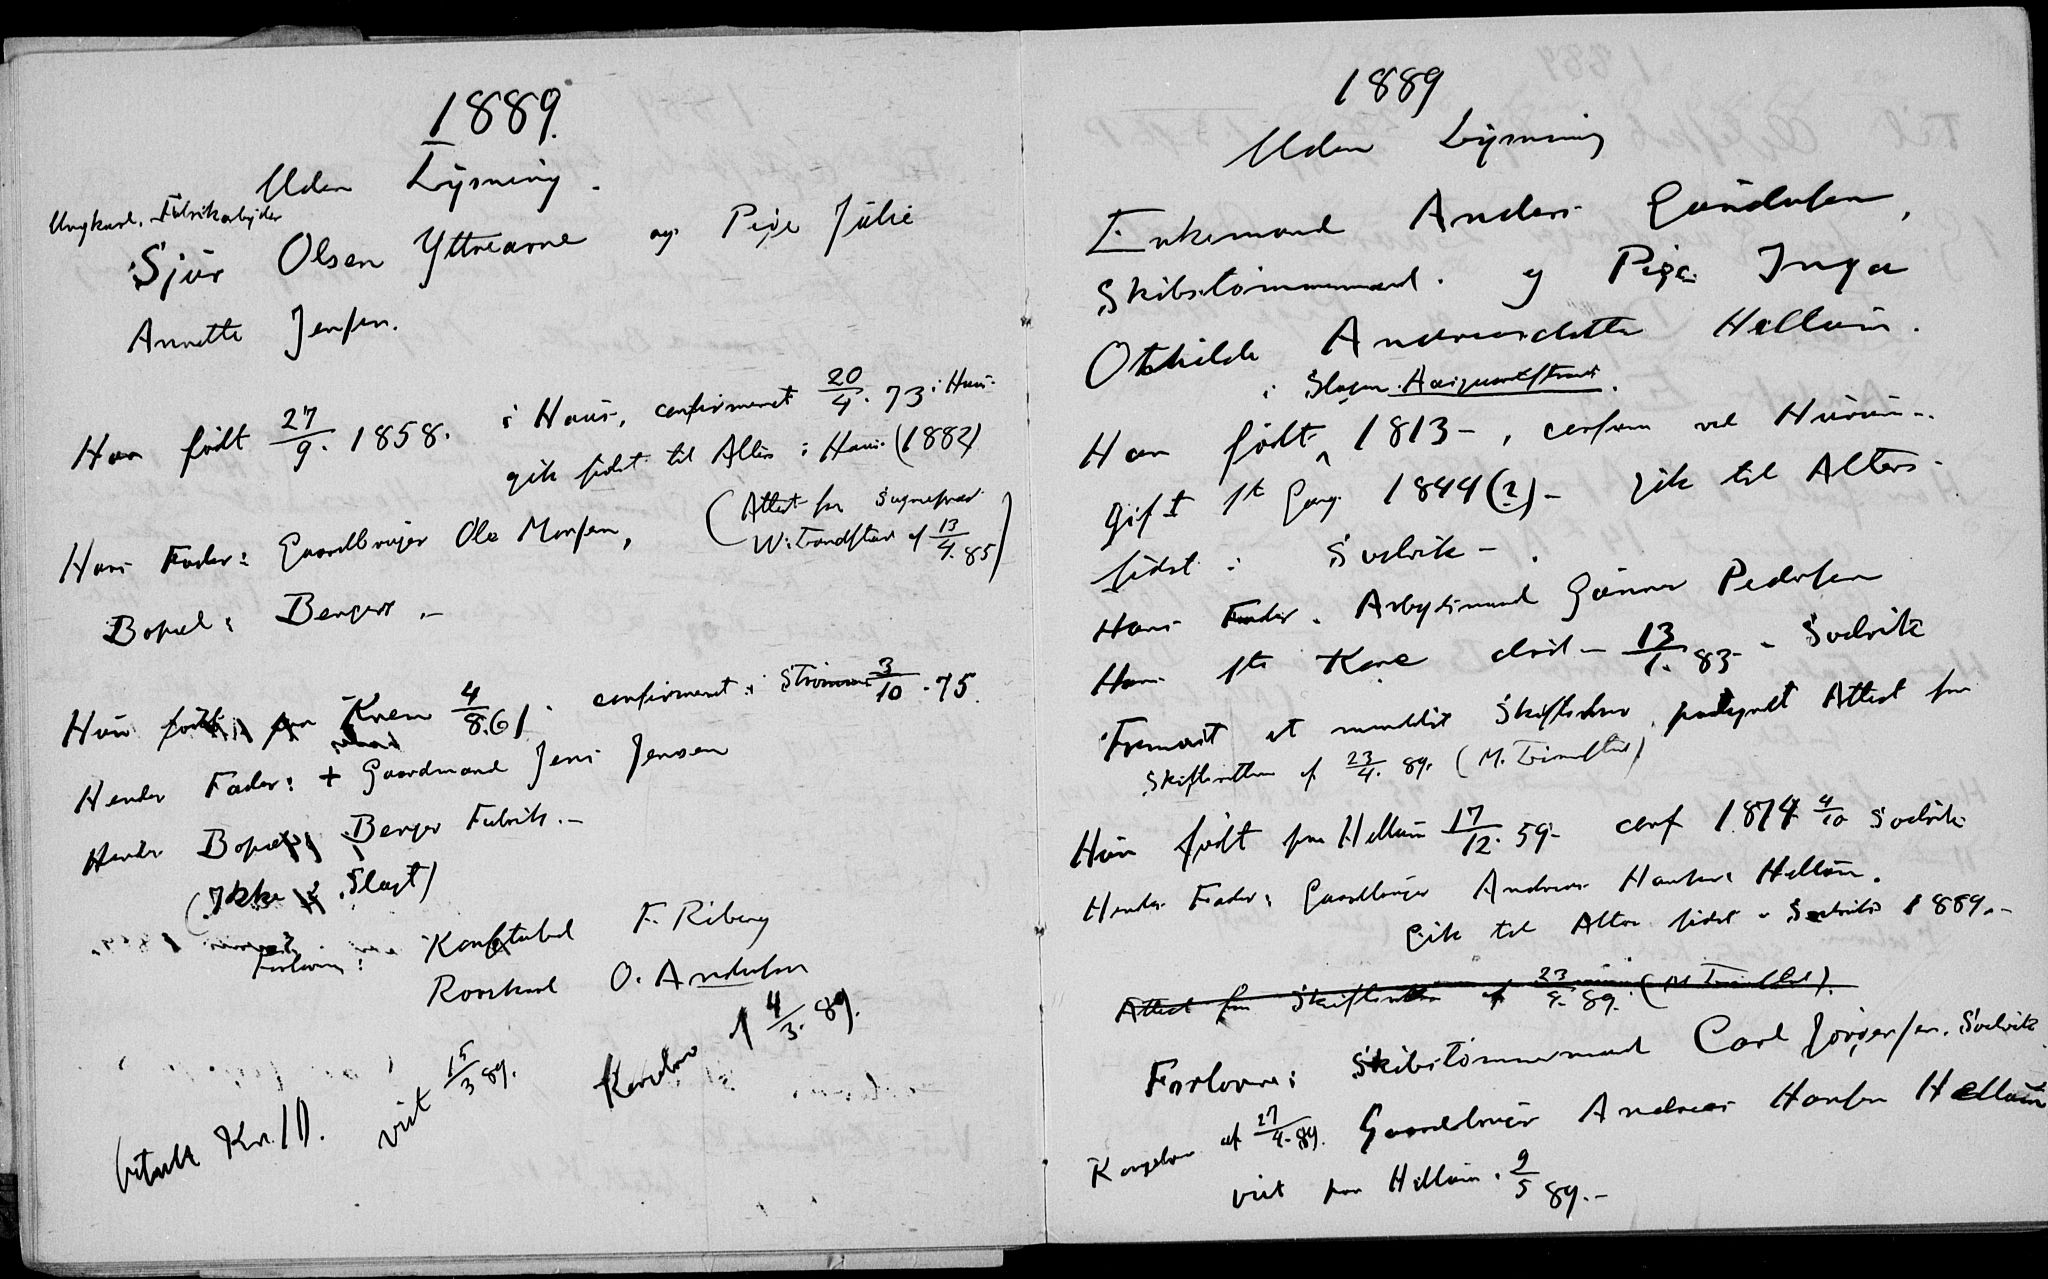 1889.
Uden Lysning.
Ungkarl. Fabrikarbejder
Sjur Olsen Yttrearne og Pige Julie
Annette Jensen.
Han født 27/9. 1858. i Haus, confirmeret 20/4. 73 i Haus.
gik sidst til Alters i Haus (1882)
Hans Fader: Gaardbruger Ole Monsen,
(Attest fra Sognepræst
W. Frondstad af 13/4. 85)
Bopæl: Berger. -
Hun født paa Kren 4/8. 61. confirmeret i Strømm 3/10. 75.
Hendes Fader: + Gaardmand Jens Jensen
Hendes Bopæl, Berger Fabrik. -
(Ikke i Slægt)
Forlovere: Konstabel F. Riberg
Rorskarl O. Andersen
betalt Kr. 10. viet 15/3 89. Kongebrev af 4/3. 89.
1889
Uden Lysning
Enkemand Anders Gundersen,
Skibstømmermand. og Pige Inga
Othilde Andreasdatter Hellum.
i Slagen
Han født 1813 -, confirm ved Hurum -.
Gift 1ste Gang 1844 (?) - Gik til Alters
sidst i Svelvik -.
Hans Fader. Arbejdsmand Gunner Pedersen
Hans 1ste Kone død - 13/1. 83 - Svelvik
Fremvist et mundtlig Skiftebrev, paategnet Attest fra
Skifteretten af 23/4. 89.
Hun født paa Hellum 17/12. 59 - conf 1874 4/10 Svelvik
Hendes Fader: Gaardbruger Andreas Hansen Hellum.
Gik til Alters sidst i Svelvik 1889. -
Attest fra Skifteretten af 23/4. 89.
Forlovere: Skibstømmermand Carl Jørgensen. Svelvik
Kongebrev af 27/4. 89. Gaardbruger Andreas Hansen Hellum
viet paa Hellum. 9/5 89. -